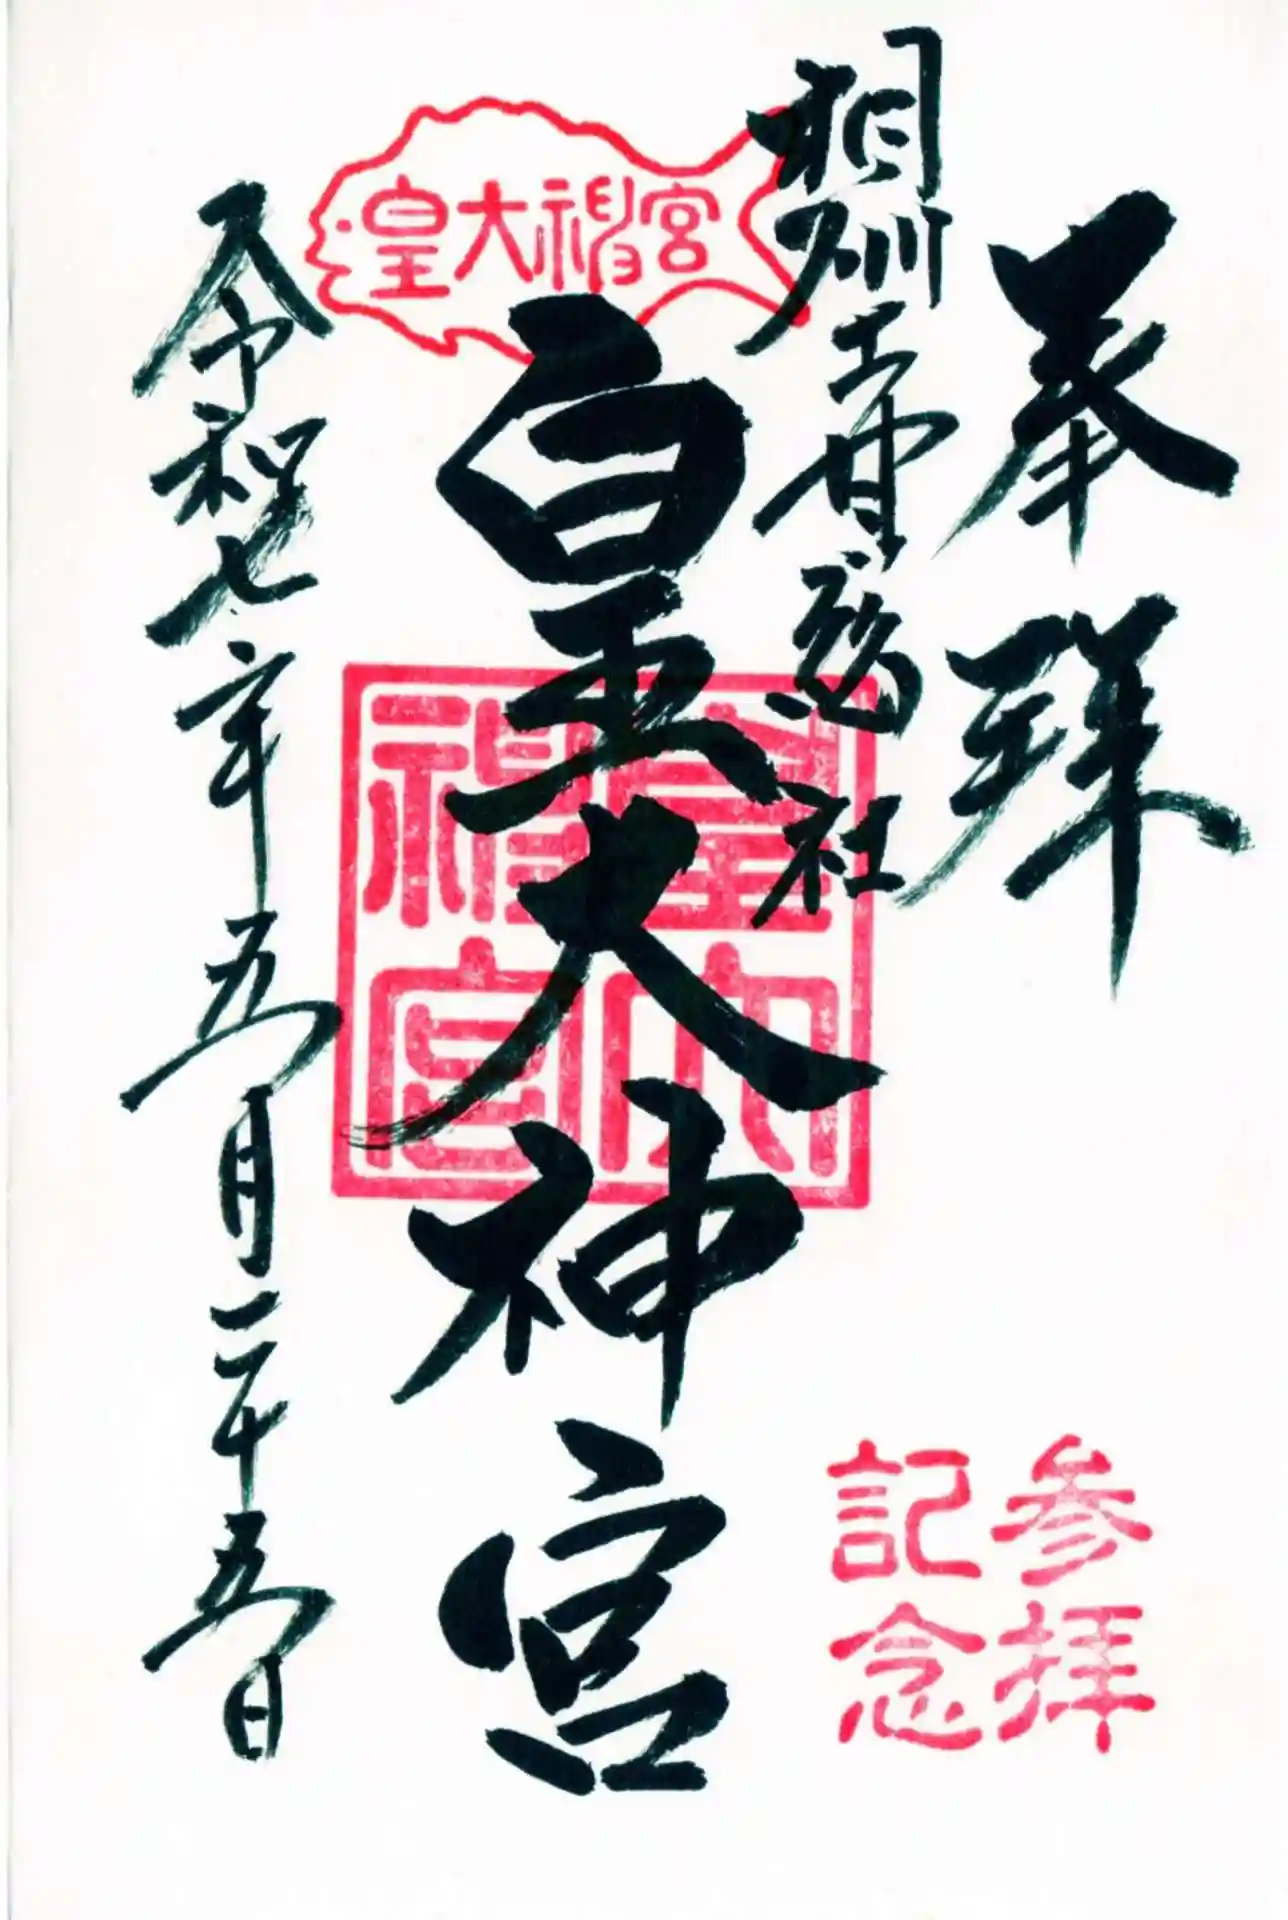 奉拝
相州土甘郷総社
皇大神宮
令和七年五月二十五日
皇大神宮
皇大神宮
参拝記念